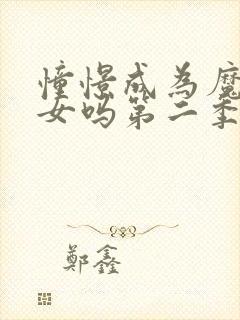 憧憬成為魔
女吗第二季
鄭鑫